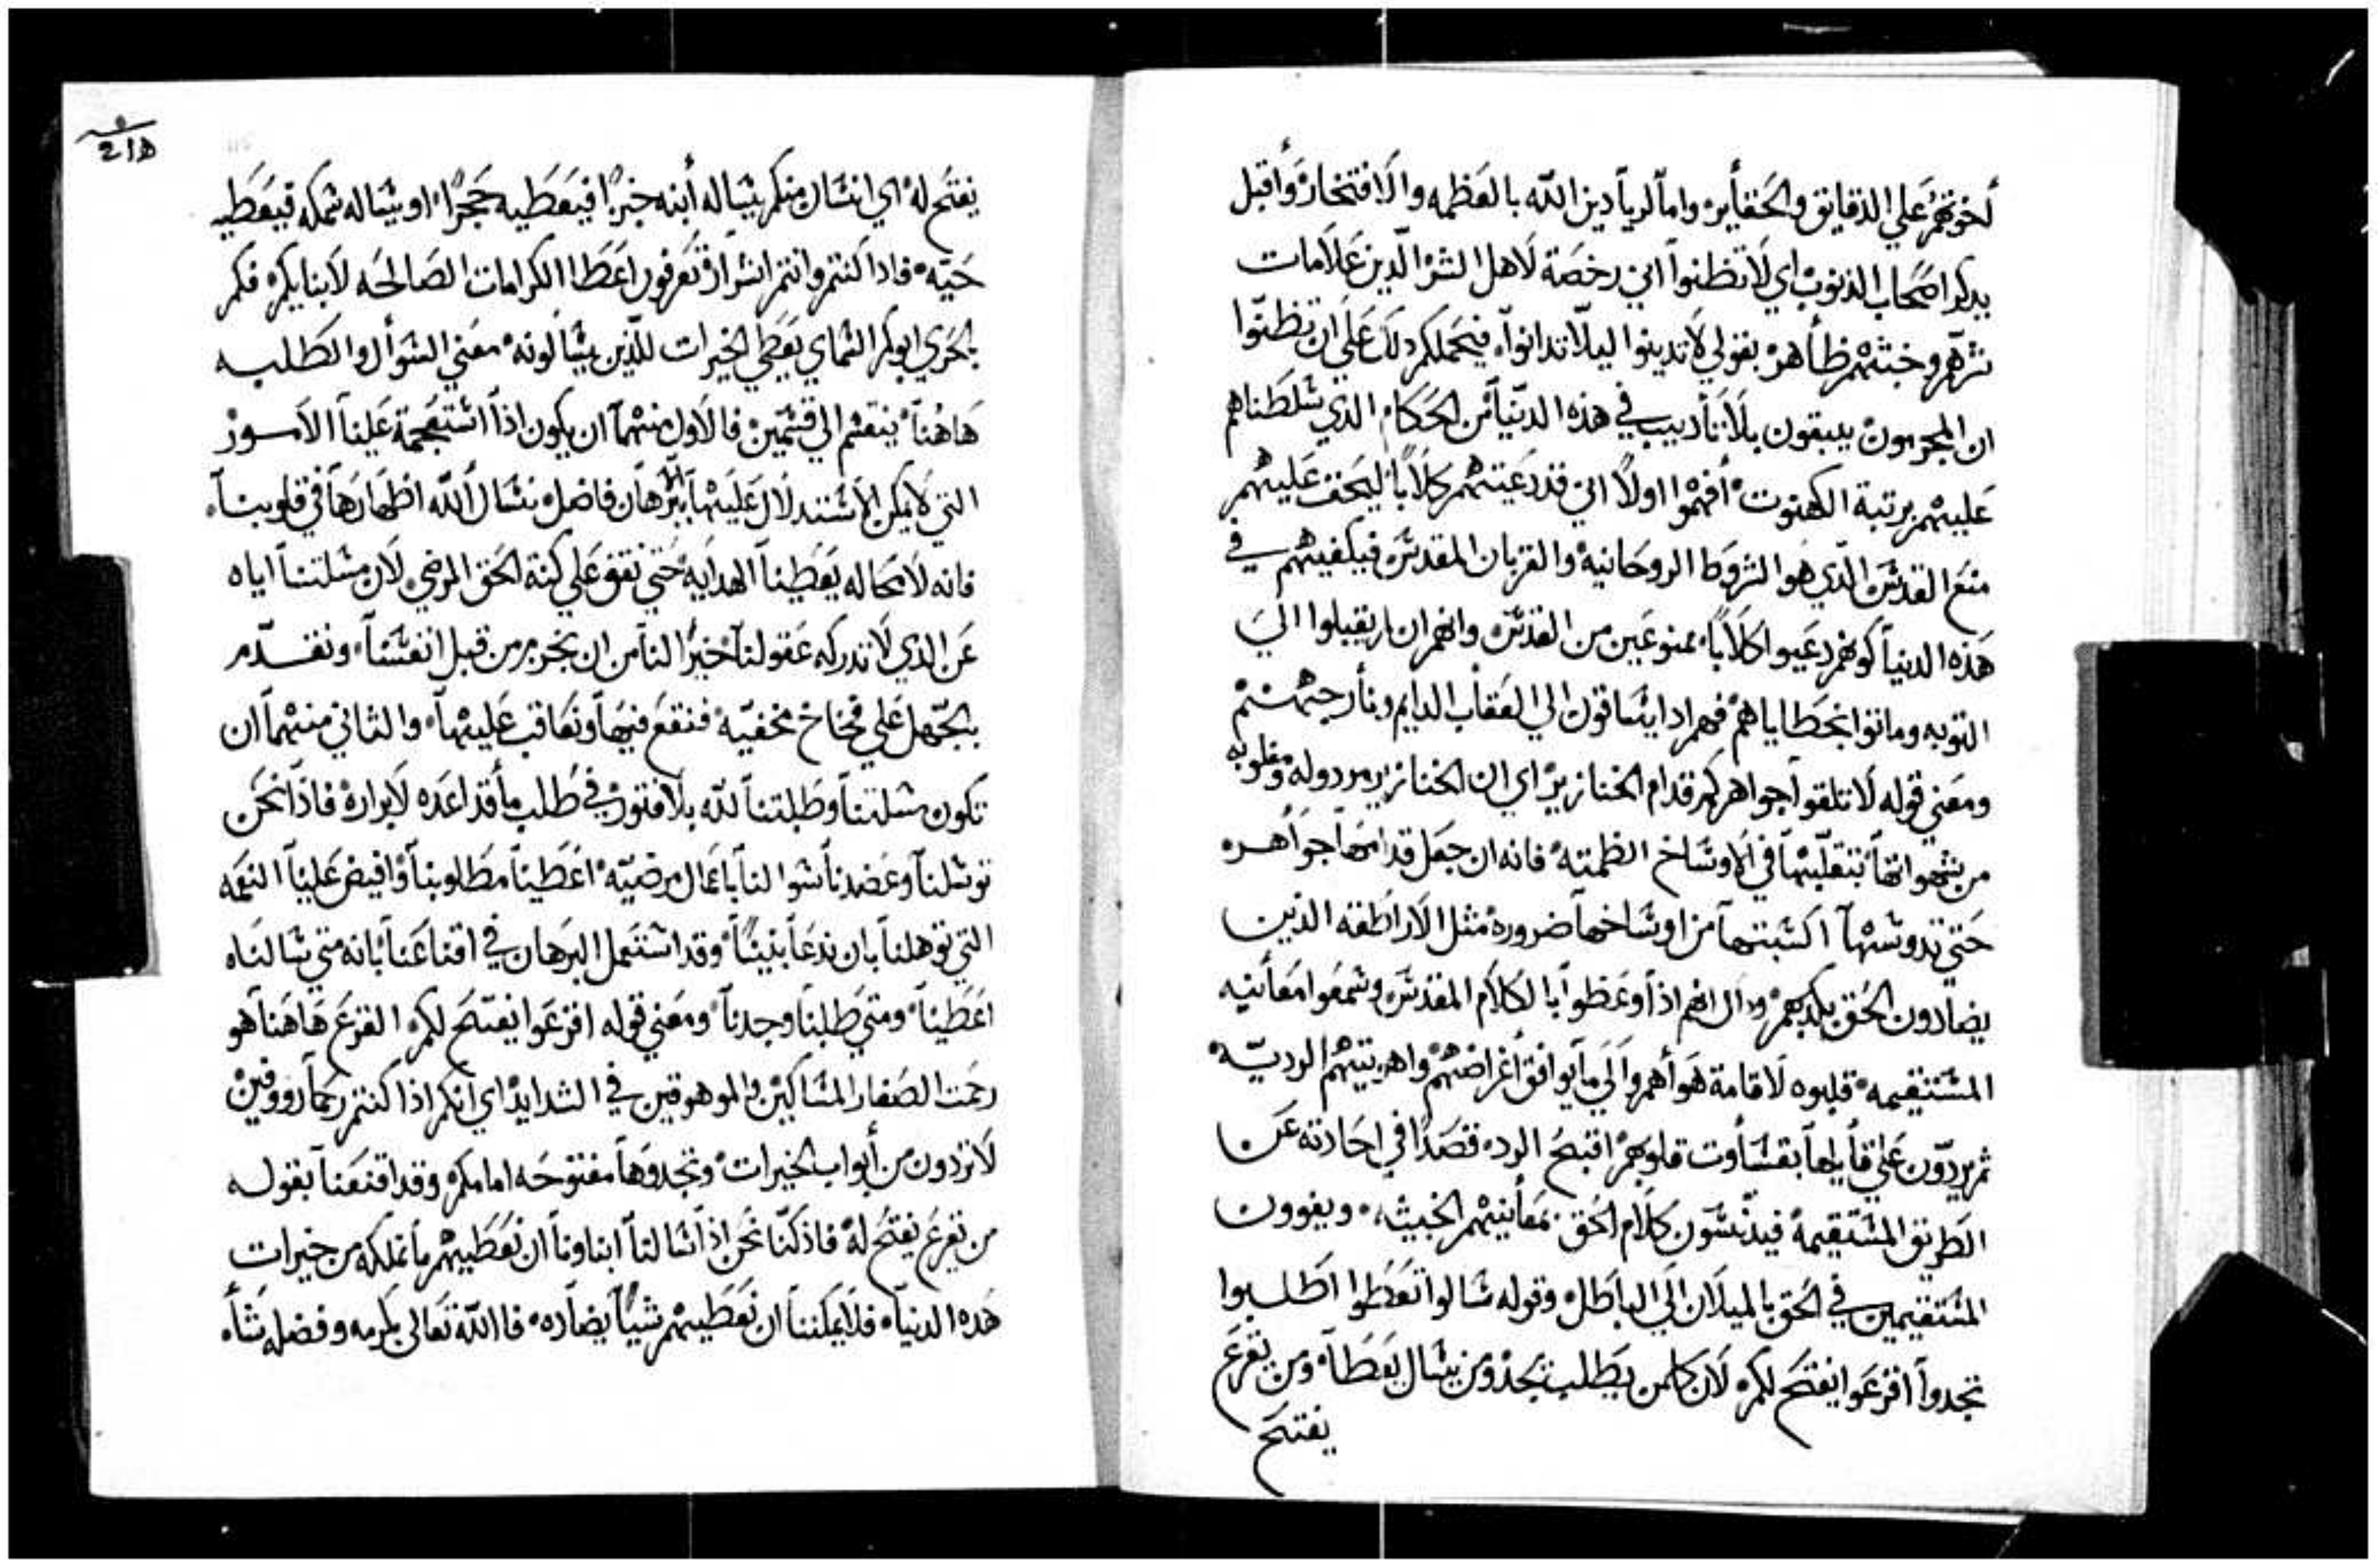 لخوتهم على الدقايق والحقأيره واما لرياَدين الله بالعظمه والافتخار وأقبل
بدكر اصحاب الذنوب اي لا تظنوا اني رخصة لاهل الشر الّدين علامات
شرهم وخبثهم ظأهره بقولي لا تدينوا ليلا تدانوا. فيحملكم دلك على ان تظنّوا
ان المجرمون يبقون بلا تأديب في هذه الدنيا من الحكام الذي سلطناهم
عليهم برتبة الكهنوت أفهموا اولاً اني قد دعيتهم كلاباً ليحقف عليهم
منع القدس الّدي هو الشروط الروحانيه والقربان المقدس فيكفيهم في
هذه الدنيا كونهم دعيوا كلاباً. ممنوعين من القدس وانهم ان لم يقبلوا الي
التوبه وماتوا بخطاياهم فهم ادا يساقون الي العقاب الدايم ونأر جهنم
ومعني قوله لا تلقوا جواهركم قدام الخنازير اي ان الخنازير مردوله ومغلوبه
من شهواتها بتقلّبها في الاوساخ الظمته فانه ان جعل قدامها جواهره
حتي تدوسها اكسبتها من اوساخها ضروره مثل الاراطقه الذين
يضادون الحق بكدبهم وال انهم اذا وعظوا بالكلام المقدس وسمعوا معأنيه
المستقيمه قلبوه لاقامة هوأهم والي ما يوافق أغراضهم واهويتهم الرديّه
ثم يردّون علي قأيلها بقسأوت قلوبهم اقبح الرد. قصداً في احادته عن
الطريق المستقيمة فيدنّسون كلام الحق بمعأنيهم الخبيثه. ويغوون
المستقيمين في الحق بالميلان الي الباطل وقوله سالوا تعطوا اطلبوا
تجدوا اقرعوا يفتح لكم. لان كلمن يطلب يجد ومن يسال يعطاه ومن يقرع
يفتح
يفتح له اي انسان منكم يساله أبنه خبزاً فيعطيه حجراً او يساله سمكه فيعطيه
حيّه فاداكنتم وانتم اشرار تعرفون اعطا الكرامات الصالحه لابنايكم. فكم
بالحري ابوكم السماي يعطي الخيرات للّذين يسالونه معني السوأل والطلبه
هاهنا ينقسم الي قسمين فالاول منهما ان يكون اذا استعجمة علينا الاسور
التي لا يمكن الاستدلال عليها ببرهان فاضل نسال الله اظهارها في قلوبنا
فانه لا محاله يعطينا الهدايه حتي نقف علي كنة الحق المرضي لان مسلتنا اياه
عن الذي لا تدركه عقولنا خيراً لنا من ان نخبر من قبل انفسنا ونقدم
بالجهل علي فخاخ مخفيّه فنقع فيها ونعاقب عليها والثاني منهما ان
تكون مسلتنا وطلبتنا للّه بلا فتور في طلب مأقد اعده لابراره فاذا نحن
توسلنا وعضدنا سوالنا باعمال مرضيّه اعطينا مطلوبنا وافيض علينا النعمه
التي توهلنا بان ندعأ بنيناً وقد استعمل البرهان في اقناعنا بانه متي سالناه
اعطينا ومتي طلبنا وجدنا ومعني قوله اقرعوا يفتح لكم. القرع هاهنا هو
رحمت الصغار المساكين والموهوقين في الشدايد اي انكم اذا كنتم رحماَ رووفين
لا تردون من أبواب الخيرات وتجدوها مفتوحه امامكم وقد اقنعنا بقوله
من يقرع يفتح له فاذكنّا نحن اذا سالنا ابناونا ان نعطيهم ما نملكه من خيرات
هده الدنياه فلا يمكننا ان نعطيهم شياً يضاده. فاالله تعالى بكرمه وفضله نسأه